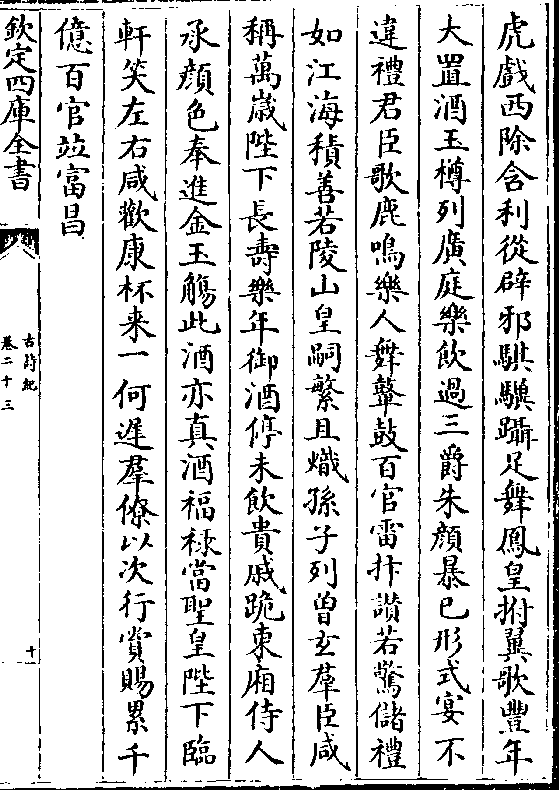 虎戲西除含利從辟邪騏驥躡足舞鳳皇拊翼歌豐年
大置酒玉樽列廣庭樂飲過三爵朱顔暴已形式宴不
違禮君臣歌鹿鳴樂人舞鼙鼓百官雷抃讃若驚儲禮
如江海積善若陵山皇嗣繁且熾孫子列曽玄羣臣咸
稱萬歳陛下長壽樂年御酒停未飲貴戚跪東廂侍人
承顔色奉進金玉觴此酒亦真酒福禄當聖皇陛下臨
軒笑左右咸歡康杯来一何遲羣僚以次行賞賜累千
億百官竝富昌
欽定四庫全書
古詩紀
卷二十三
十